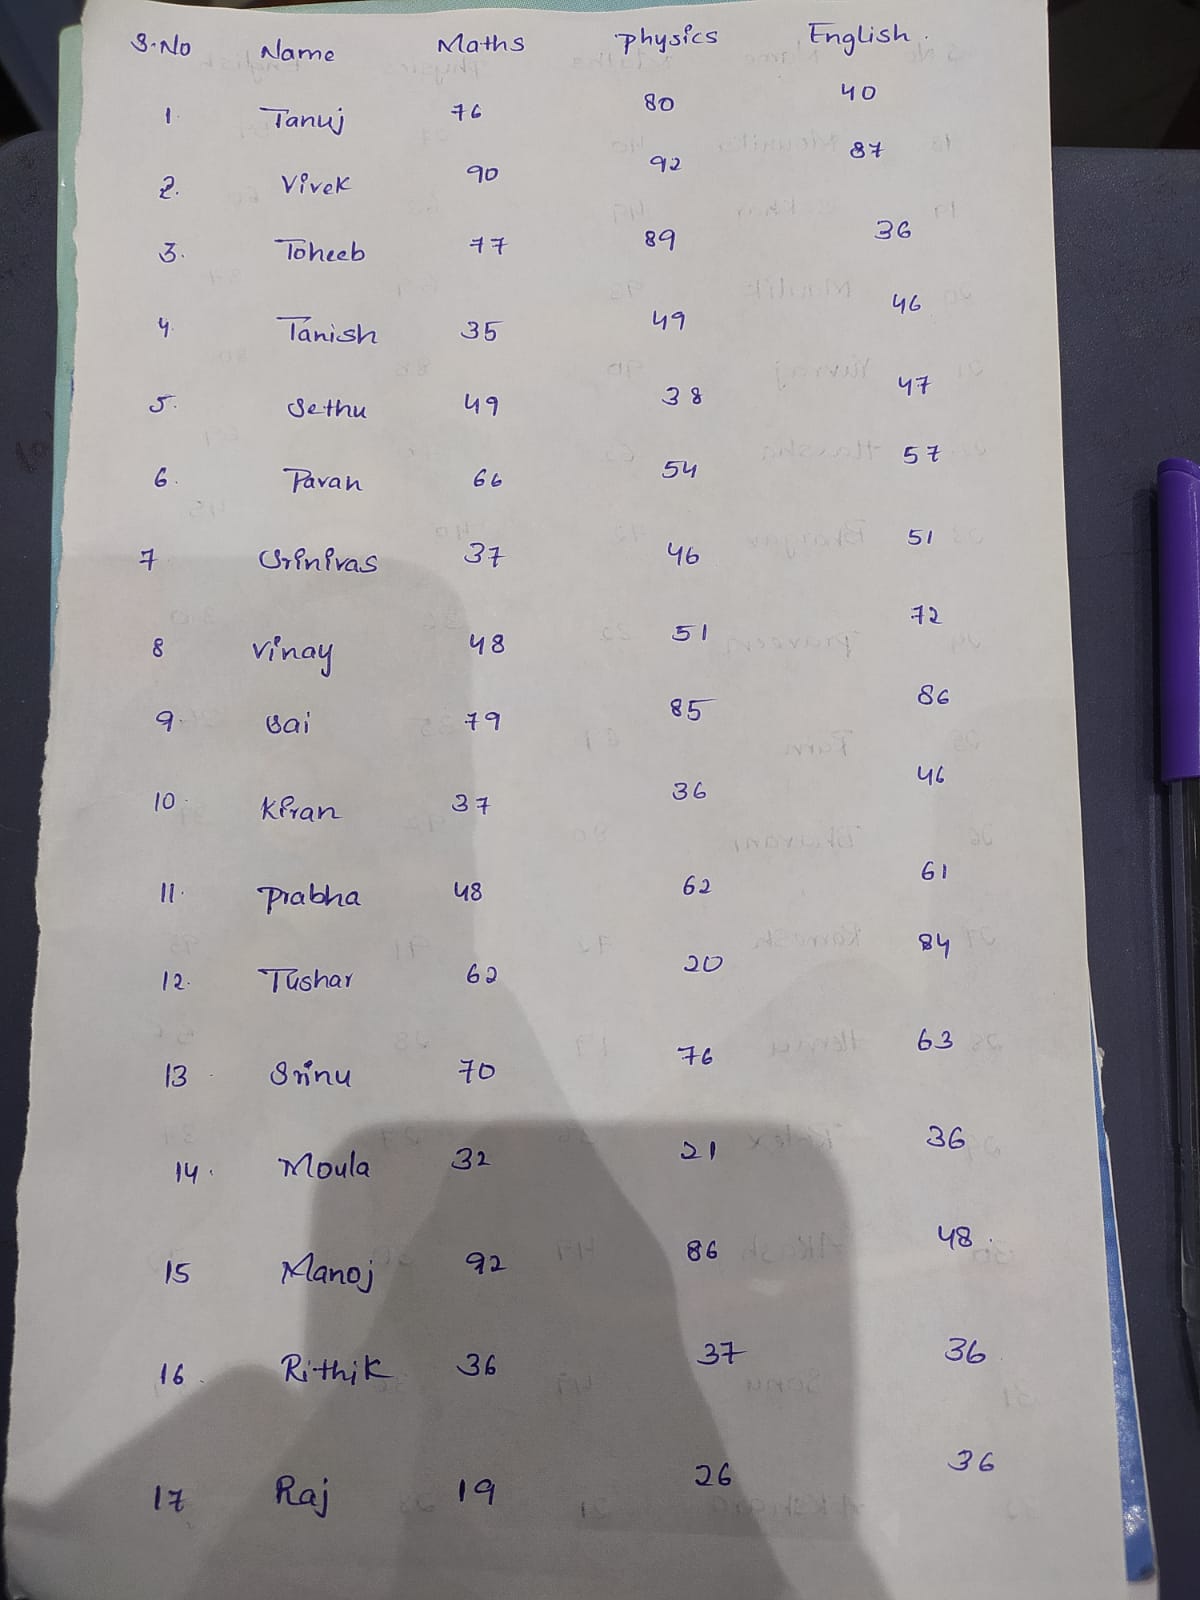 S.No Name Maths Physics English.
1. Tanuj 76 80 40
2. Vivek 90 92 87
3. Toheeb 77 89 36
4. Tanish 35 49 46
5. Sethu 49 38 47
6. Pavan 66 54 57
7 Srinivas 37 46 51
8 Vinay 48 51 72
9. Sai 79 85 86
10. Kiran 37 36 46
11. Prabha 48 62 61
12. Tushar 62 20 84
13. Srinu 70 76 63
14. Moula 32 21 36
15 Manoj 92 86 48.
16. Rithik 36 37 36
17 Raj 19 26 36